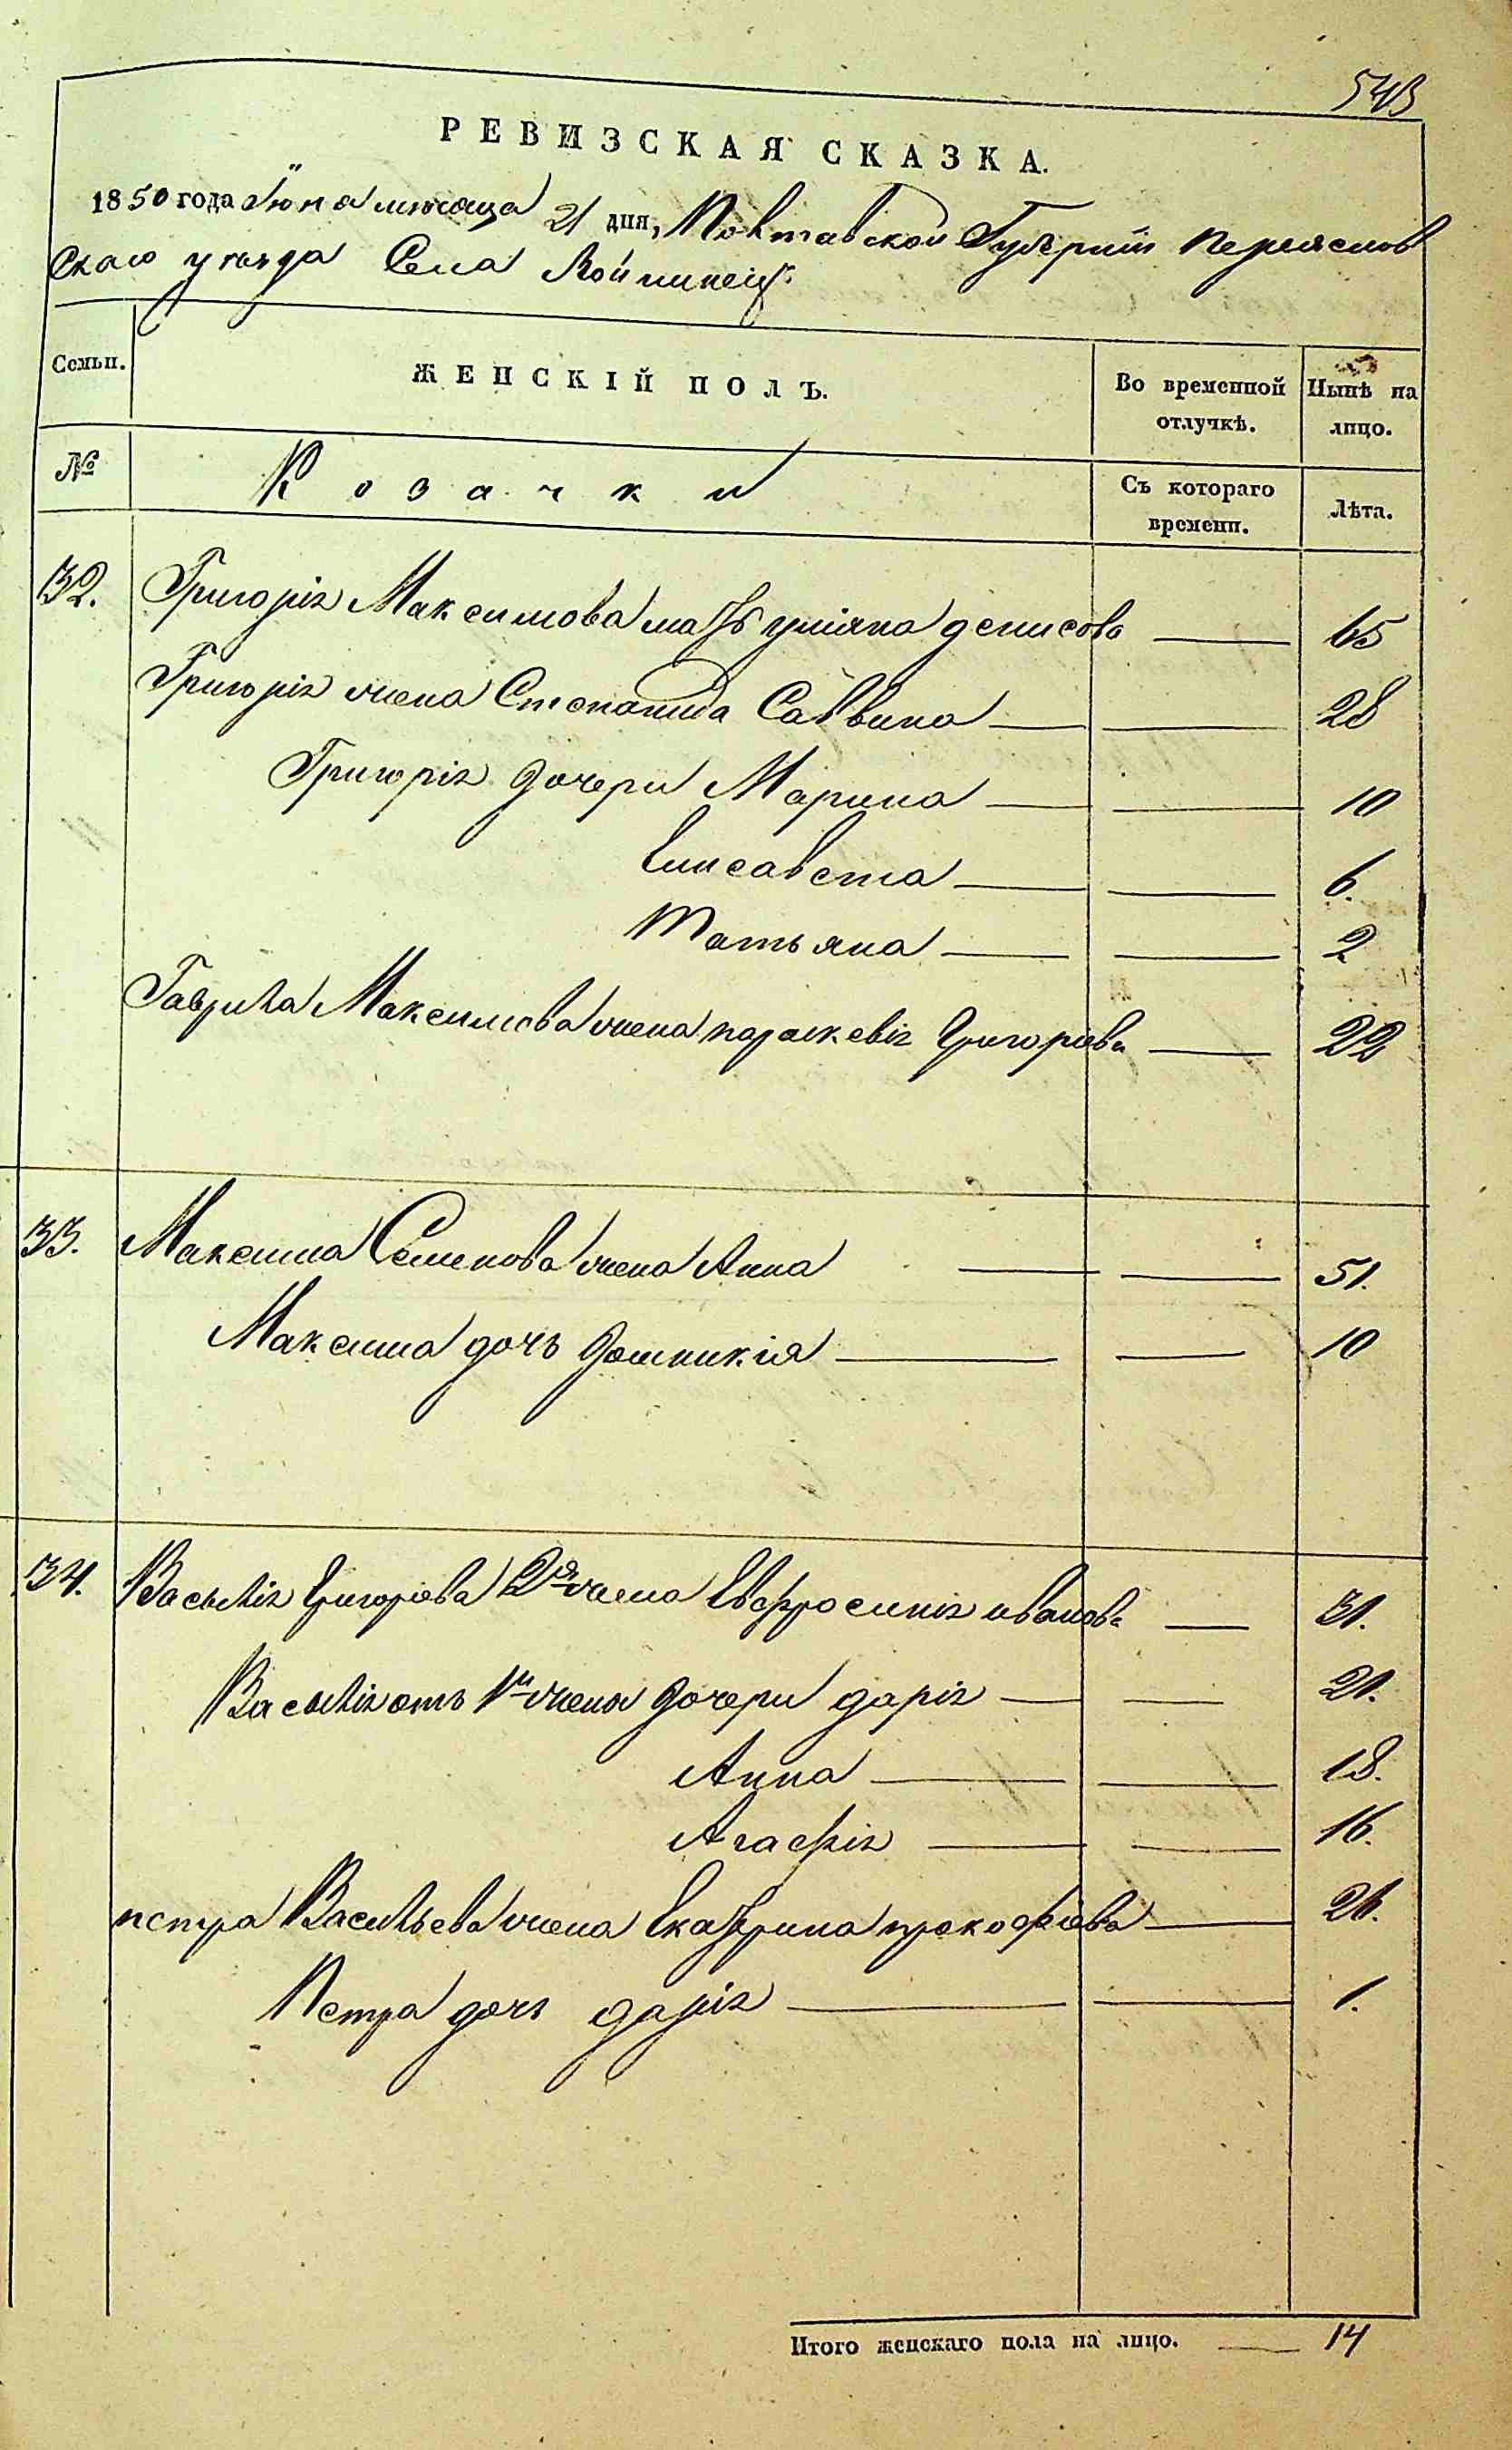 543
РЕВИЗСКАЯ СКАЗКА.
1850 года Іюня месяца 21 дня, Полтавской Губерніи Переяслов
скаго уезда Села Войтинец
Семьи.
ЖЕНСКІЙ ПОЛЪ.
Во временной отлучкѣ.
Нынѣ на лицо.
№
Козачки
Съ котораго времени.
Лѣта.
32. Григорія Максимова мать уліяна денисова 65
Григорія жена Степанида Саввина 28
Григорія дочери Марина 10
Елисавета 6.
Татьяна 2
Гаврила Максимова жена параскевія Григоріева 22
33. Максима Семенова жена Анна 51.
Максима дочь Домникія 10
34. Василія Григорева 2я жена Евфросинія иванова 31.
Василія отъ 1й жены дочери дарія 21.
Анна 18.
Агафія 16.
петра Васильева жена Екатерина прокофіева 26.
Петра дочь дарія 1.
Итого женскаго пола на лицо. 14